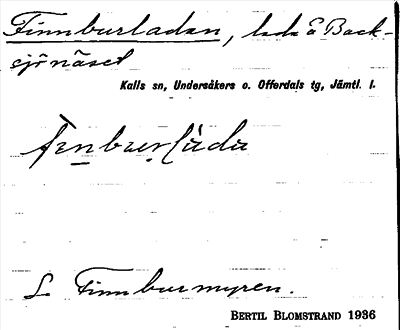 Finnburladan, lada å Back-
sjönäset
Kalls sn, Undersåkers o. Offerdals tg, Jämtl. l.
Finnburmyren.
BERTIL BLOMSTRAND 1936